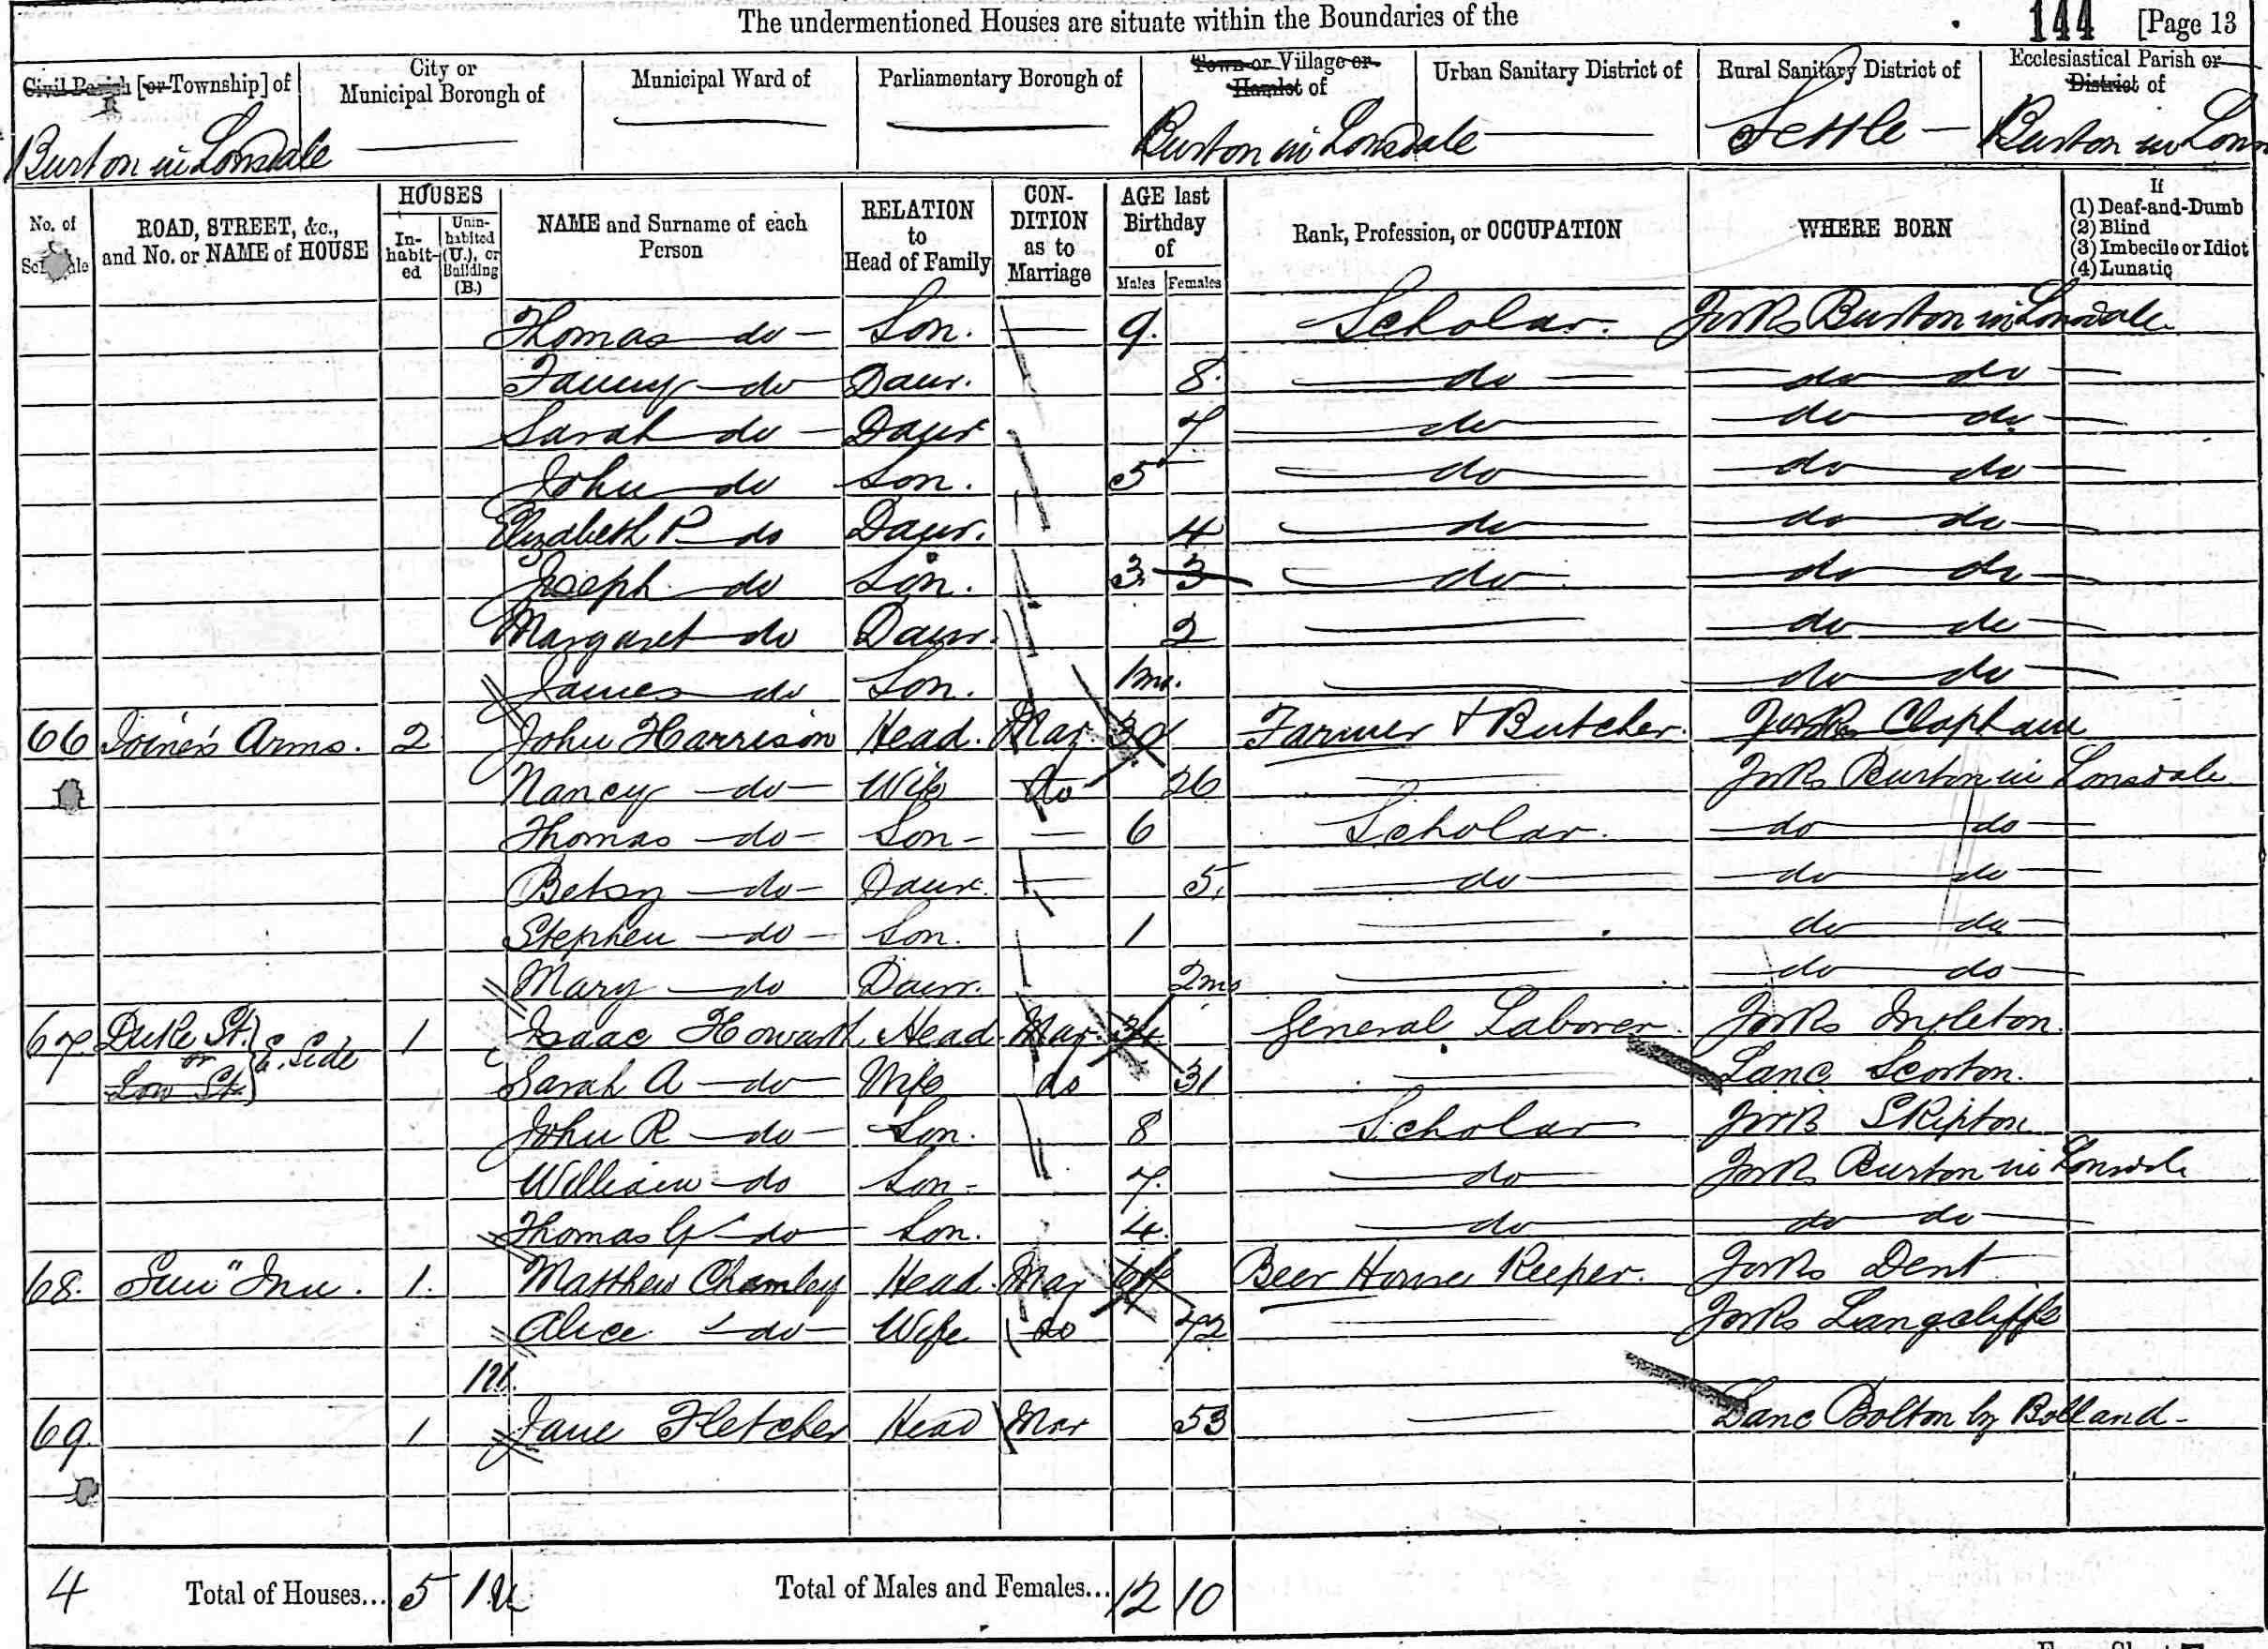 The undermentioned Houses are situate within the Boundaries of the
144 [Page 13
Civil Parish [or Township] of
City or Municipal Borough of
Municipal Ward of
Parliamentary Borough of
Town or Village or Hamlet of
Urban Sanitary District of
Rural Sanitary District of
Ecclesiastical Parish or District of
Burton in Lonsdale Burton in Lonsdale Settle Burton in Lons
No. of Schedule
ROAD, STREET, &c., and No. or NAME of HOUSE
HOUSES
In-habit-ed
Unin-habited (U.), or Building (B.)
NAME and Surname of each Person
RELATION to Head of Family
CON-DITION as to Marriage
AGE last Birthday of
Males Females
Rank, Profession, or OCCUPATION
WHERE BORN
If
(1) Deaf-and-Dumb
(2) Blind
(3) Imbecile or Idiot
(4) Lunatic
Thomas do Son. 9. Scholar. Yorks Burton in Lonsdale
Fanny do Daur. 8. do do do
Sarah do Daur 7 do do do
John do Son. 5 do do do
Elizabeth P do Daur. 4 do do do
Joseph do Son. 3 3 do do do
Margaret do Daur. 2 do do
James do Son. 1mo. do do
66 Joiner's Arms. 2 John Harrison Head. Mar. Farmer & Butcher. Yorks Clapham
Nancy do Wife do 26 Yorks Burton in Lonsdale
Thomas do Son 6 Scholar. do do
Betsy do Daur. 5. do do do
Stephen do Son. 1 do do
Mary do Daur. 2mo do do
67. Duke St. or Low St. E. Side 1 Isaac Howarth Head Mar. General Laborer. Yorks Ingleton.
Sarah A do Wife do 31 Lanc Scorton.
John R do Son. 8 Scholar Yorks Skipton
William do Son 7. do Yorks Burton in Lonsdale
Thomas G do Son. 4. do do do
68. "Sun" Inn. 1. Matthew Chamley Head. Mar Beer House Keeper. Yorks Dent
Alice do Wife do 72 Yorks Langcliffe
1U.
69. 1 Jane Fletcher Head Mar 53 Lanc Bolton by Bolland
4 Total of Houses... 5 1U Total of Males and Females... 12 10